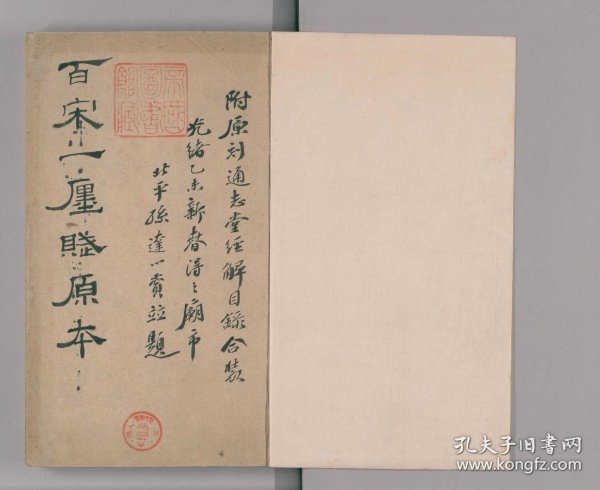 百宋一廛賦原本
附原刻通志堂經解目錄合裝
光緒乙未新春得之廟市
北平孫達賞竝題
孔夫子旧书网
www.kongfz.com